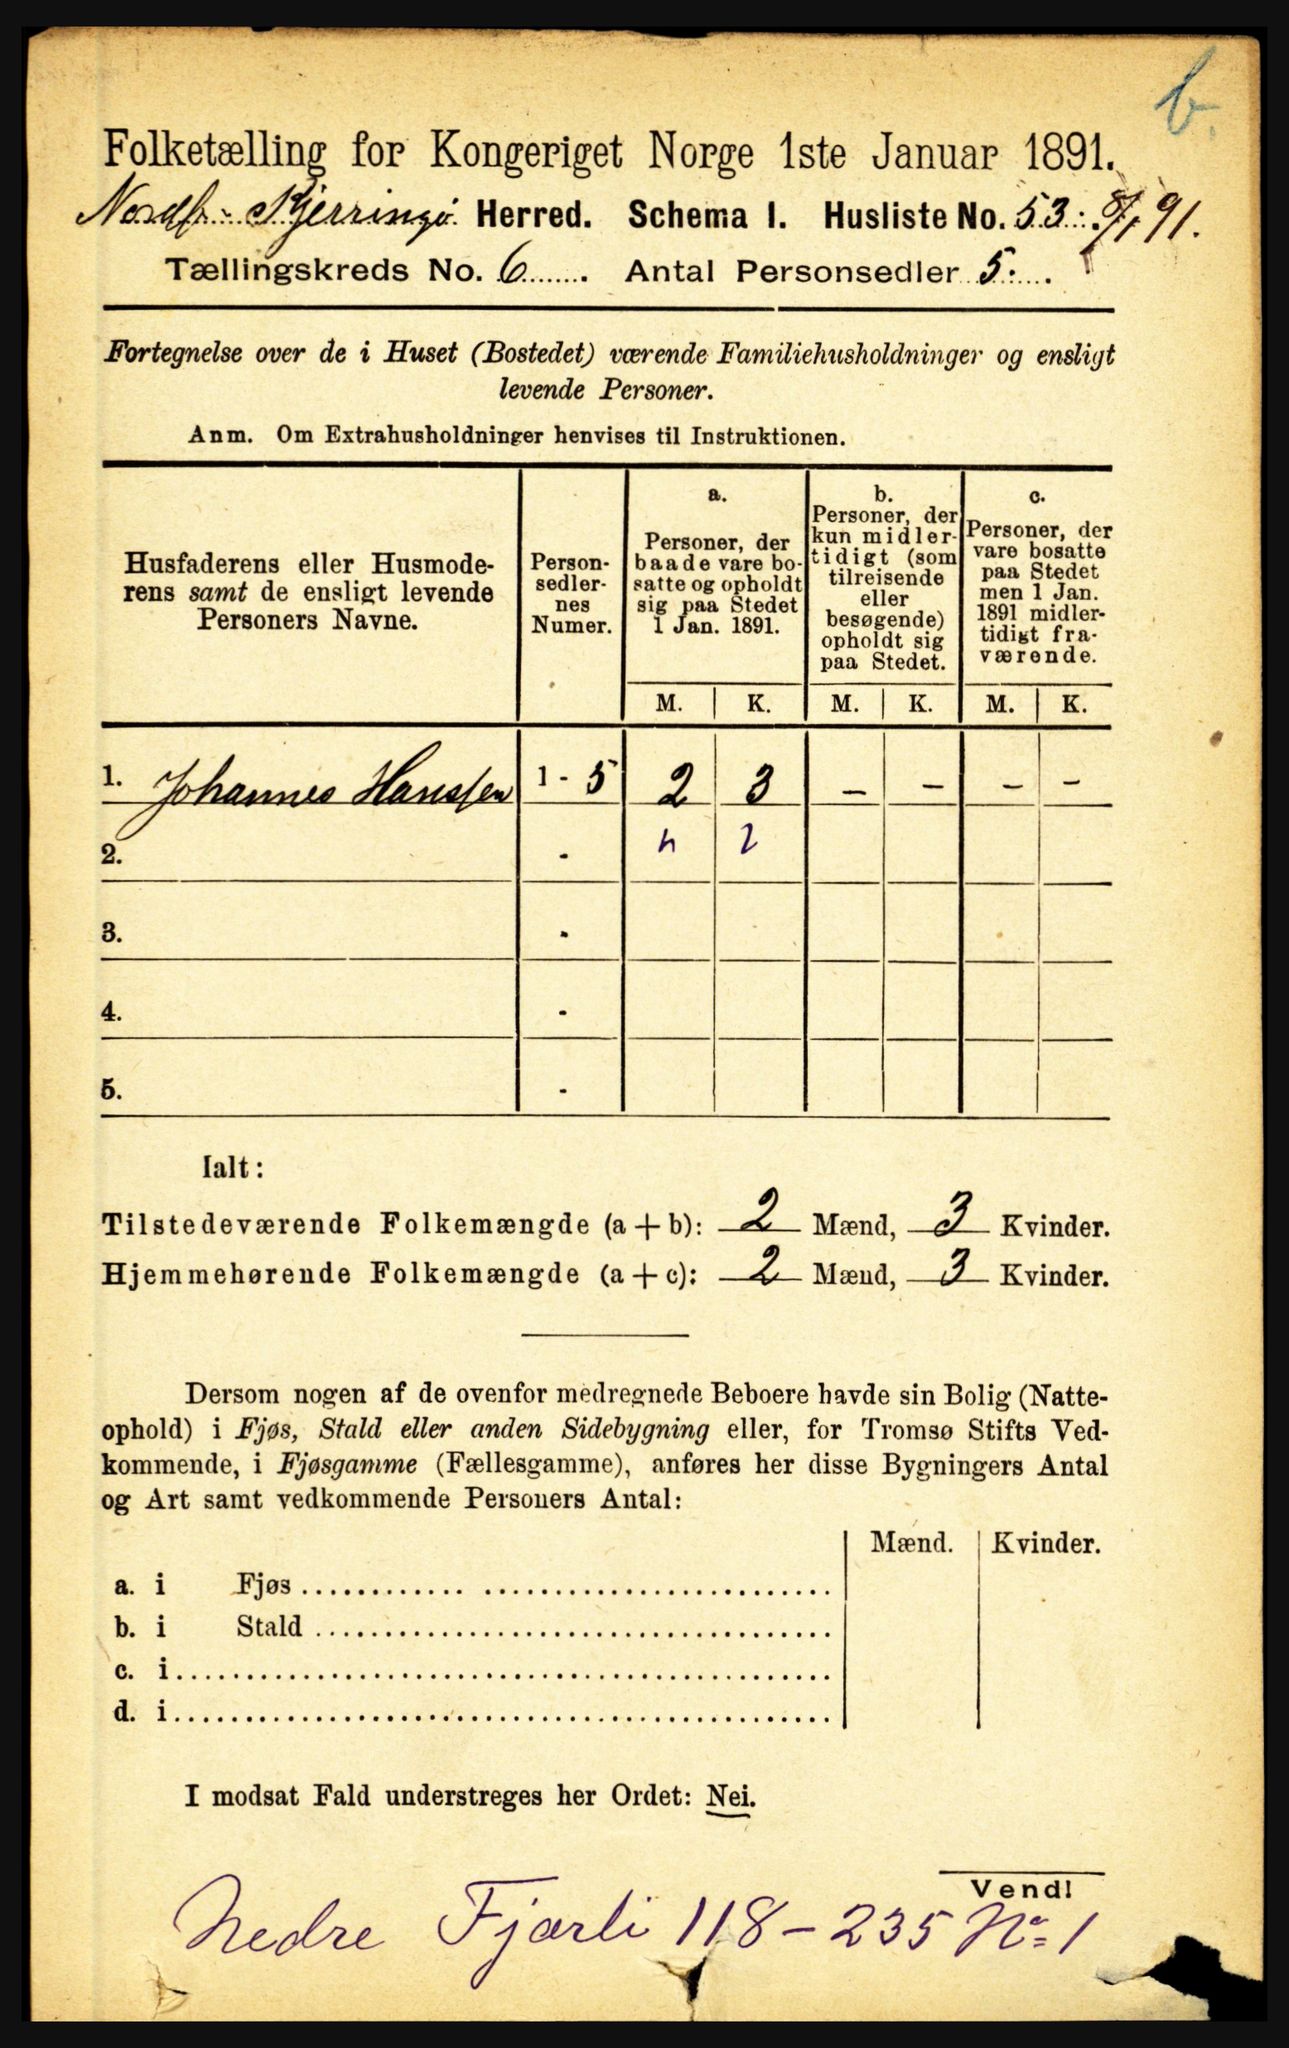 b.
Folketælling for Kongeriget Norge 1ste Januar 1891.
Nordf.- Kjerringø Herred. Schema I. Husliste No. 53. 8/1 91.
Tællingskreds No. 6 . Antal Personsedler 5 .
Fortegnelse over de i Huset (Bostedet) værende Familiehusholdninger og ensligt
levende Personer.
Anm. Om Extrahusholdninger henvises til Instruktionen.
Husfaderens eller Husmode-
rens samt de ensligt levende
Personers Navne.
Person-
sedler-
nes
Numer.
a.
Personer, der
baade vare bo-
satte og opholdt
sig paa Stedet
1 Jan. 1891.
b.
Personer, der
kun midler-
tidigt (som
tilreisende
eller
besøgende)
opholdt sig
paa Stedet.
c.
Personer, der
vare bosatte
paa Stedet
men 1 Jan.
1891 midler-
tidigt fra-
værende.
M. K. M. K. M. K.
1. Johannes Hanssen 1 - 5 2 3 - - - -
2. -
3. -
4. -
5. -
Ialt:
Tilstedeværende Folkemængde (a + b): 2 Mænd, 3 Kvinder.
Hjemmehørende Folkemængde (a + c): 2 Mænd, 3 Kvinder.
Dersom nogen af de ovenfor medregnede Beboere havde sin Bolig (Natte-
ophold) i Fjøs, Stald eller anden Sidebygning eller, for Tromsø Stifts Ved-
kommende, i Fjøsgamme (Fællesgamme), anføres her disse Bygningers Antal
og Art samt vedkommende Personers Antal:
Mænd. Kvinder.
a. i Fjøs
b. i Stald
c. i
d. i
I modsat Fald understreges her Ordet: Nei.
Vend!
Nedre Fjærli 118 - 235 No 1